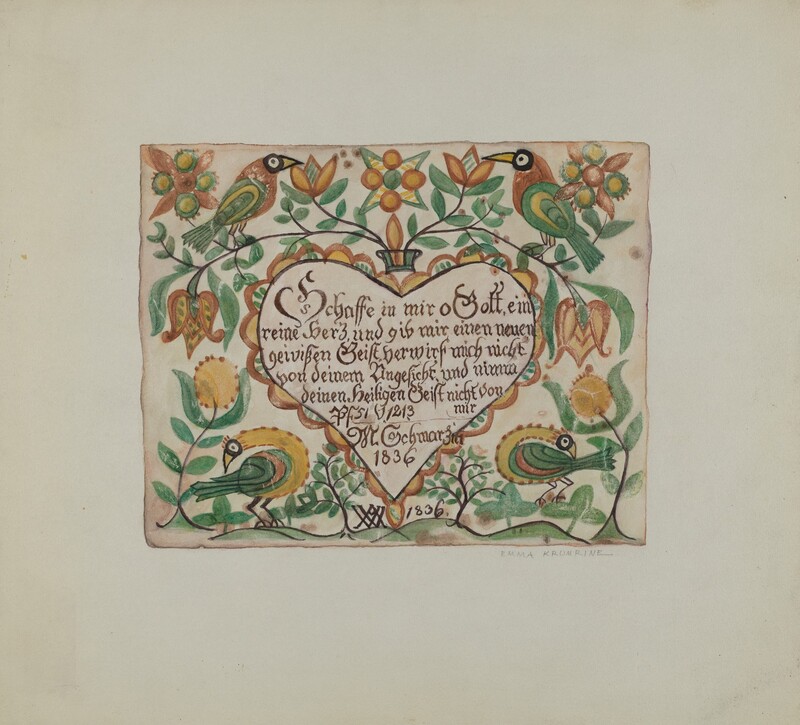 Schaffe in mir o Gott, ein
reine Herz, und gib mir einen neuen
geivißen Geist, verwirf mich nicht
von deinem Angesicht, und nimm
deinen Heiligen Geist nicht von
mir
Pf 51 V 1213
M. Schwarzin
1836
1836.
EMMA KROHRINE